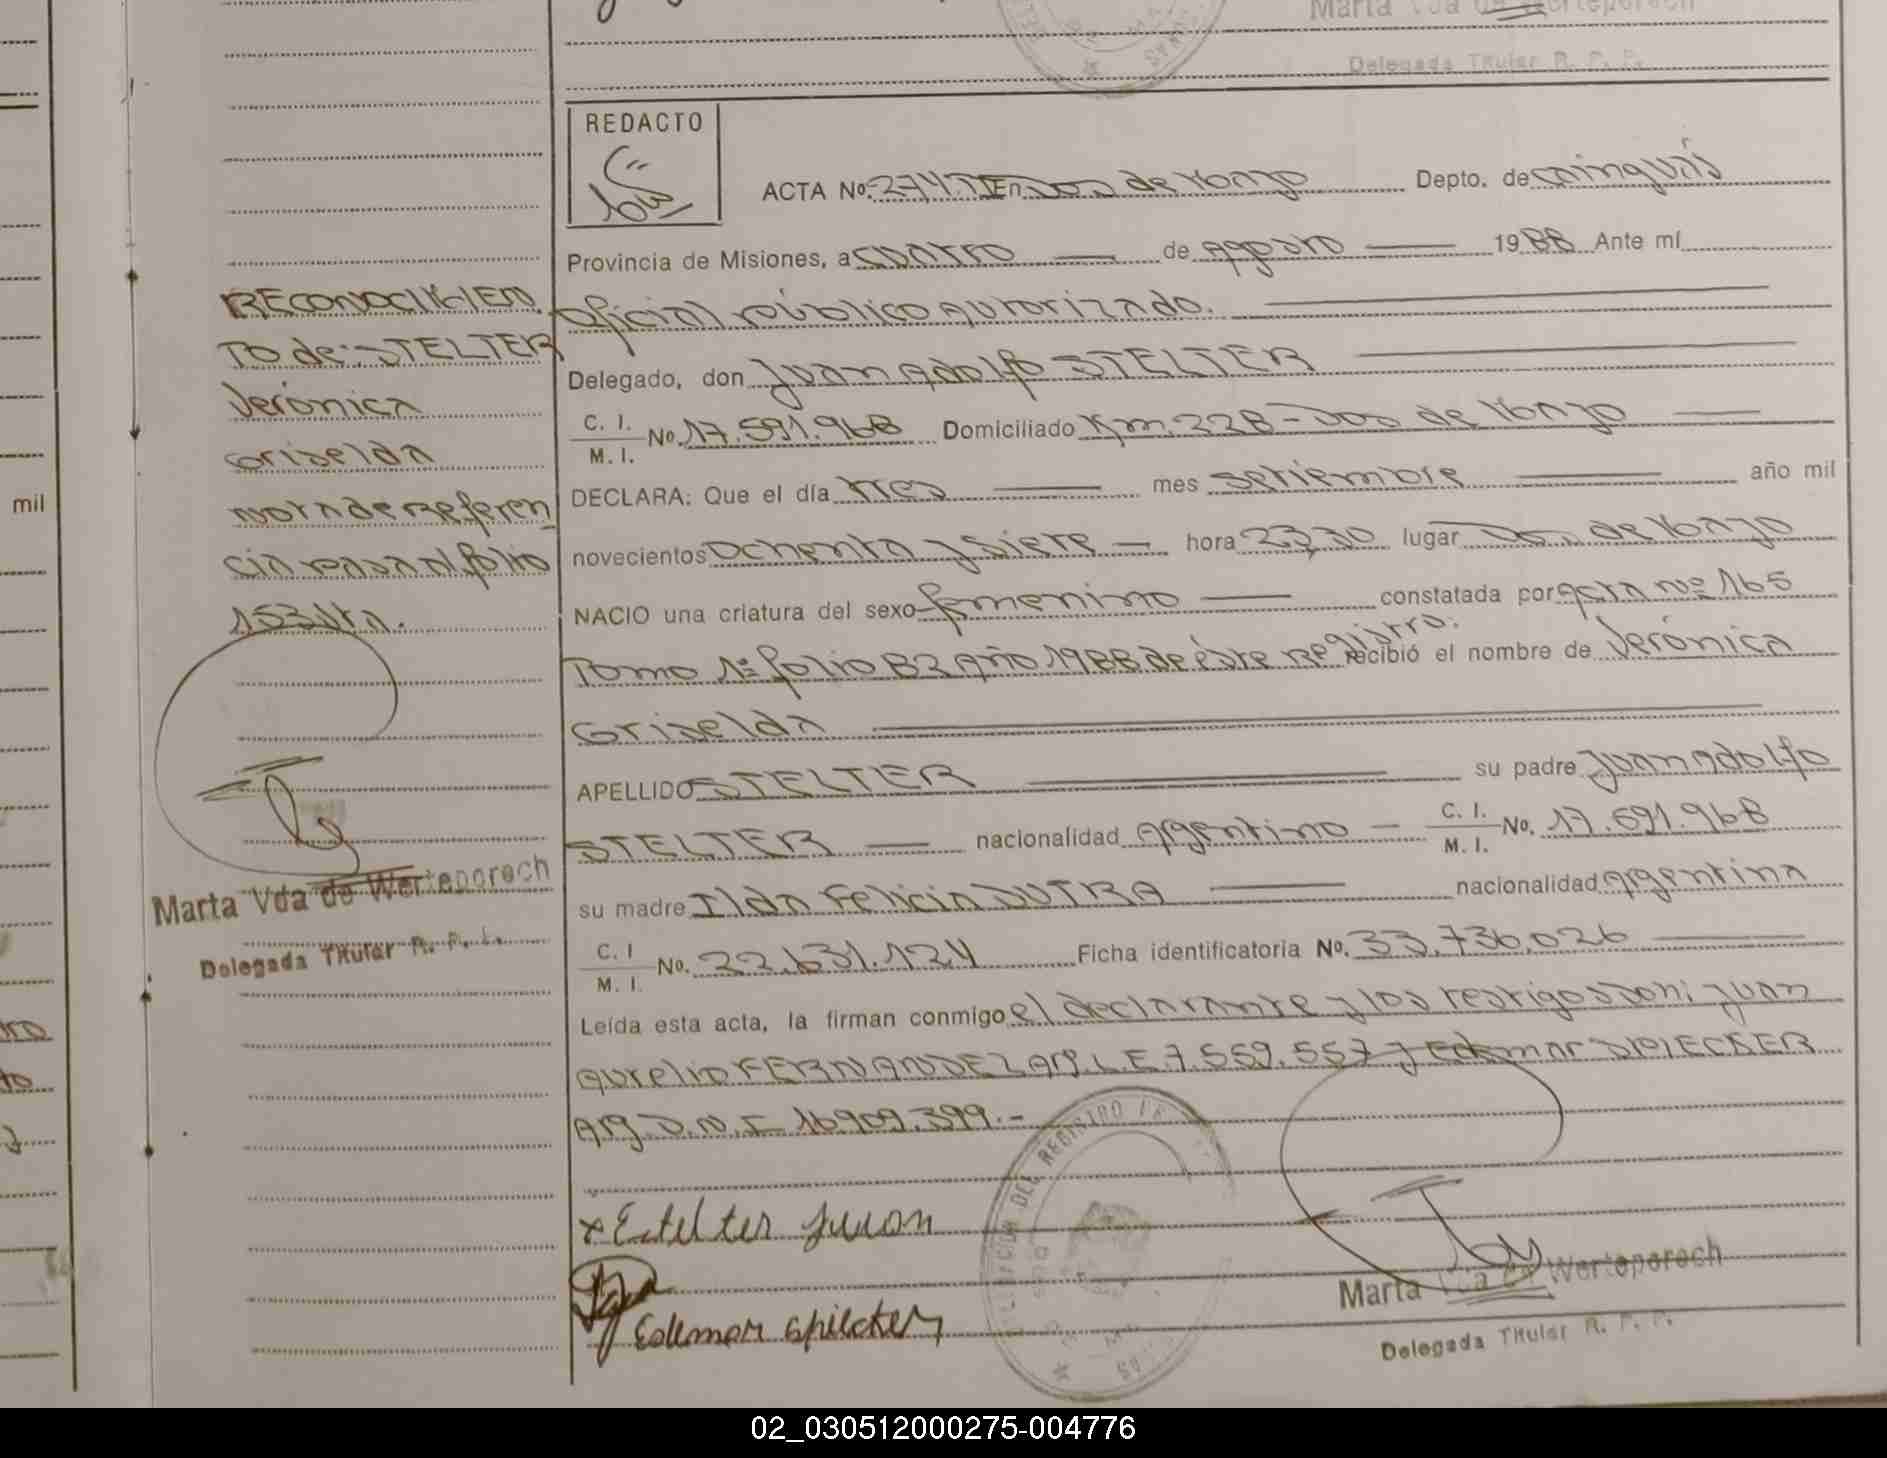 Marta Vda de Werteporech
Delegada Titular R. P. P.
REDACTO
ACTA No. 274. TI En Dos de Mayo Depto. de Cainguás
Provincia de Misiones, a cuatro de Agosto 1988 Ante mí
Oficial público autorizado.
Delegado, don Juan Adolfo STELTER
C. I.
M. I. No. 17.591.968 Domiciliado Km. 228 - Dos de Mayo
DECLARA: Que el día tres mes setiembre año mil
novecientos ochenta y siete hora 23,30 lugar Dos de Mayo
NACIO una criatura del sexo femenino constatada por acta nº 165
Tomo 1º folio 82 Año 1988 de éste registro. recibió el nombre de Verónica
Griselda
APELLIDO STELTER su padre Juan Adolfo
STELTER nacionalidad argentino C. I.
M. I. No. 17.591.968
su madre Ilda Felicia DUTRA nacionalidad argentina
C. I
M. I. No. 22.631.124 Ficha identificatoria No. 33.736.026
Leída esta acta, la firman conmigo el declarante y los testigos don: Juan
Aurelio FERNANDEZ Arg. L.E. 7.559.557 y Edemar SPIECKER
Arg. D.N.I 16.909.399.-
x Estelter Juan
Edemar Spiecker
Marta Vda de Werteporech
Delegada Titular R. P. P.
RECONOCIMIEN
TO de: STELTER
Verónica
Griselda
Nota de Referen
cia pasa al folio
153 Vta.
Marta Vda de Werteporech
Delegada Titular R. P. P.
mil
02_030512000275-004776